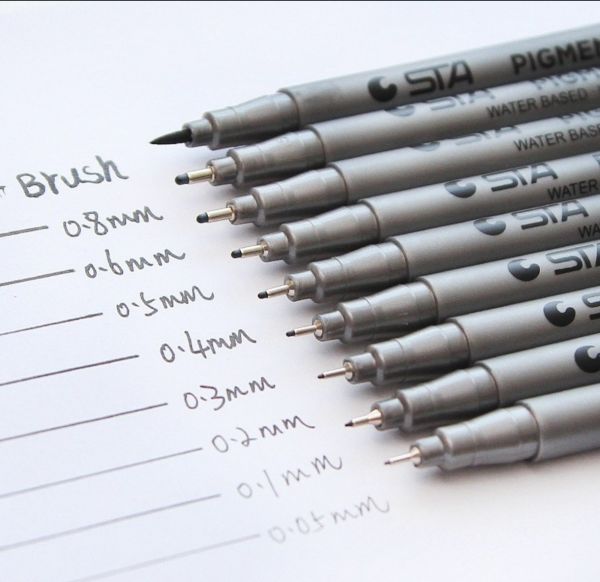 STA PIGMEN
STA WATER BASED
WATER BASE
STA WATER
STA
STA
STA
Brush
0.8mm
0.6mm
0.5mm
0.4mm
0.3mm
0.2mm
0.1mm
0.05mm